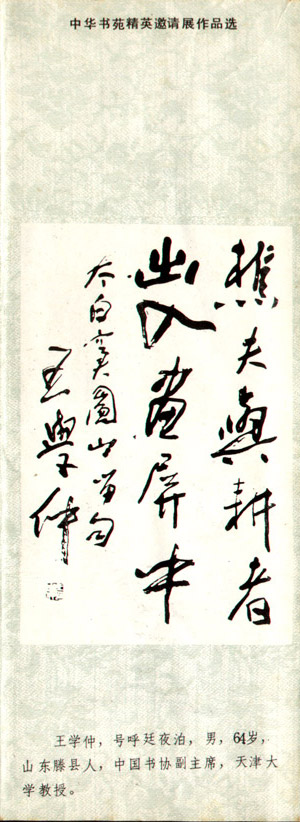 中华书苑精英邀请展作品选
樵夫與耕者
出入畫屏中
太白窦圌山留句
王學仲
王学仲，号呼廷夜泊，男，64岁，
山东滕县人，中国书协副主席，天津大
学教授。